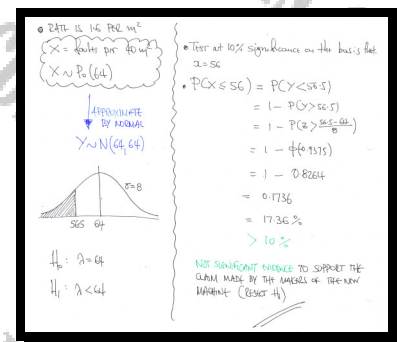 • RATE IS 1·6 PER m²
X = faults per 40 m²
X ~ Po(64)
APPROXIMATE
BY NORMAL
Y ~ N(64, 64)
σ=8
56.5 64
H₀ : λ=64
H₁ : λ<64
• TEST at 10% significance on the basis that
x=56
• P(X ≤ 56) = P(Y<56.5)
= 1 - P(Y>56.5)
= 1 - P(Z > (56.5-64)/8)
= 1 - ϕ(0.9375)
= 1 - 0.8264
= 0.1736
= 17.36%
> 10%
NOT SIGNIFICANT EVIDENCE TO SUPPORT THE
CLAIM MADE BY THE MAKERS OF THE NEW
MACHINE (REJECT H₁)